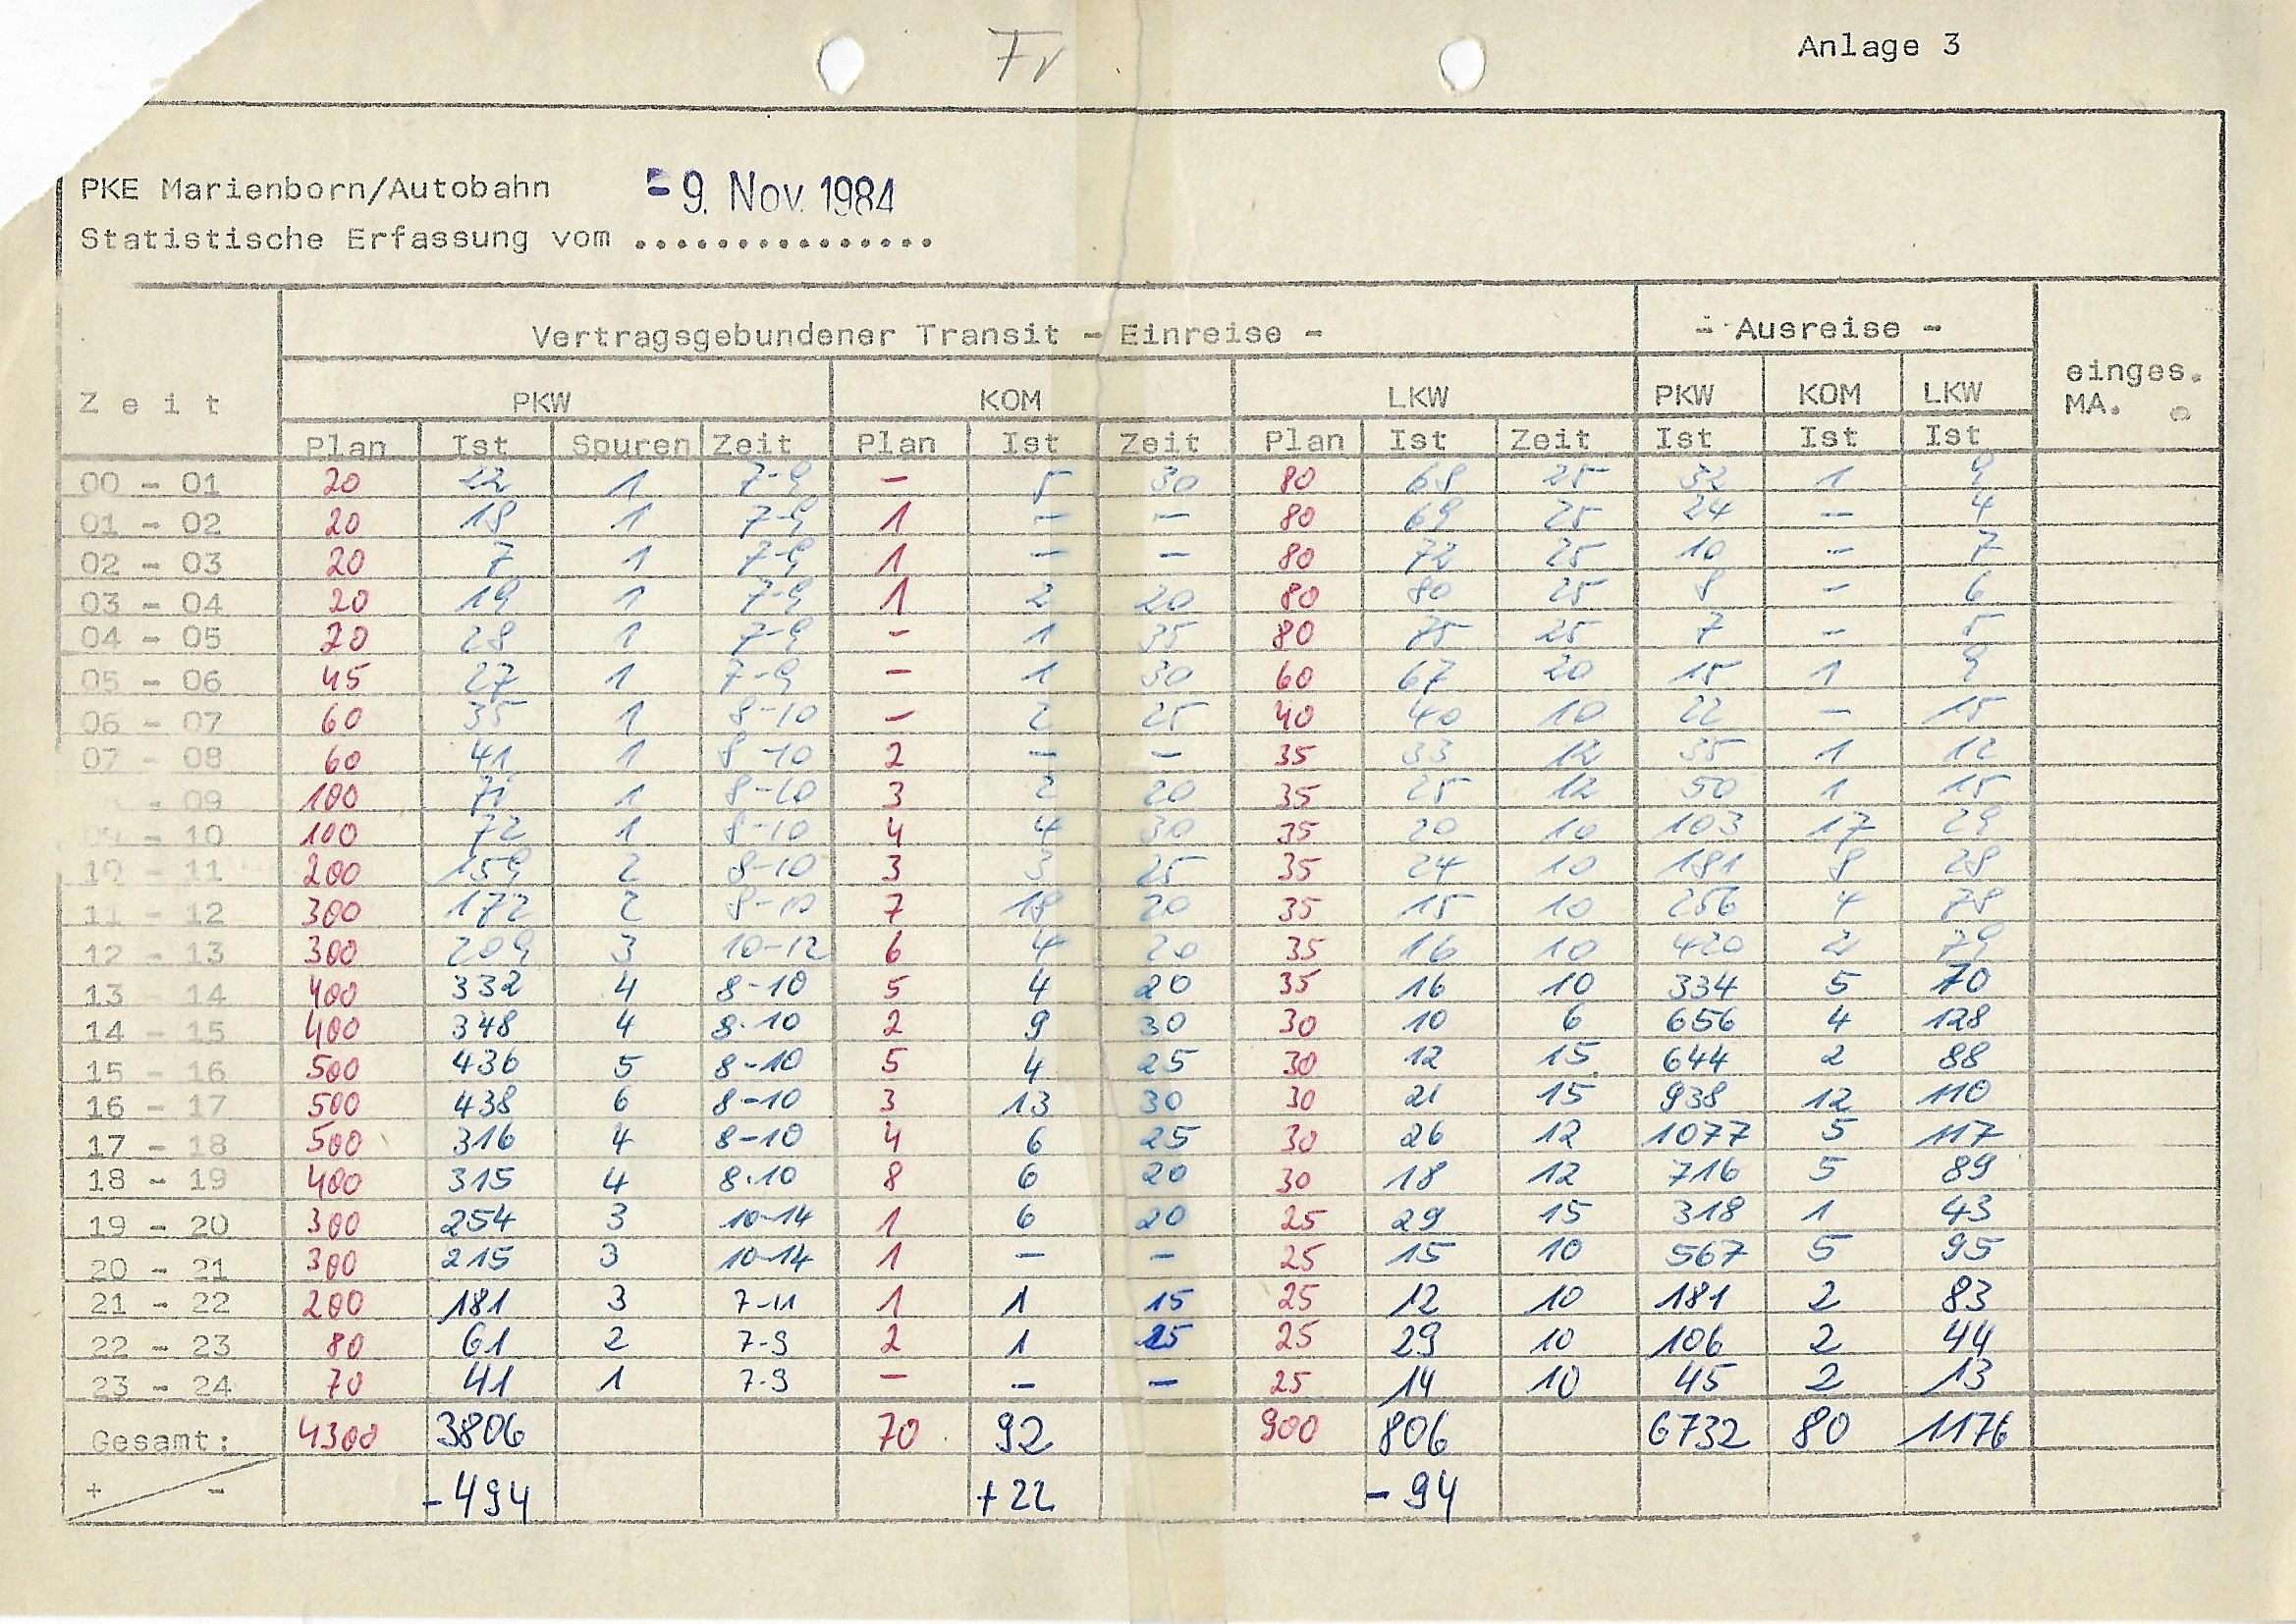 Fr
Anlage 3
PKE Marienborn/Autobahn - 9. Nov. 1984
Statistische Erfassung vom ...............
Vertragsgebundener Transit - Einreise - - Ausreise -
Zeit PKW KOM LKW PKW KOM LKW einges. MA.
Plan Ist Spuren Zeit Plan Ist Zeit Plan Ist Zeit Ist Ist Ist
00 - 01 20 22 1 7-9 - 5 30 80 68 25 32 1 9
01 - 02 20 18 1 7-9 1 - - 80 69 25 24 - 4
02 - 03 20 7 1 7-9 1 - - 80 72 25 10 - 7
03 - 04 20 19 1 7-9 1 2 20 80 80 25 8 - 6
04 - 05 20 28 1 7-9 - 1 35 80 75 25 7 - 5
05 - 06 45 27 1 7-9 - 1 30 60 67 20 15 1 9
06 - 07 60 35 1 8-10 - 2 25 40 40 10 22 - 15
07 - 08 60 41 1 8-10 2 - - 35 33 12 35 1 12
- 09 100 71 1 8-10 3 2 20 35 25 12 50 1 15
09 - 10 100 72 1 8-10 4 4 30 35 20 10 103 17 29
10 - 11 200 159 2 8-10 3 3 25 35 24 10 181 8 28
11 - 12 300 172 2 8-10 7 18 20 35 15 10 256 4 78
12 - 13 300 209 3 10-12 6 4 20 35 16 10 420 2 79
13 - 14 400 332 4 8-10 5 4 20 35 16 10 334 5 70
14 - 15 400 348 4 8.10 2 9 30 30 10 6 656 4 128
15 - 16 500 436 5 8-10 5 4 25 30 12 15 644 2 88
16 - 17 500 438 6 8-10 3 13 30 30 21 15 938 12 110
17 - 18 500 316 4 8-10 4 6 25 30 26 12 1077 5 117
18 - 19 400 315 4 8.10 8 6 20 30 18 12 716 5 89
19 - 20 300 254 3 10-14 1 6 20 25 29 15 318 1 43
20 - 21 300 215 3 10-14 1 - - 25 15 10 567 5 95
21 - 22 200 181 3 7-11 1 1 15 25 12 10 181 2 83
22 - 23 80 61 2 7-9 2 1 25 25 29 10 106 2 44
23 - 24 70 41 1 7.9 - - - 25 14 10 45 2 13
Gesamt: 4300 3806 70 92 900 806 6732 80 1176
+ - -494 +22 -94